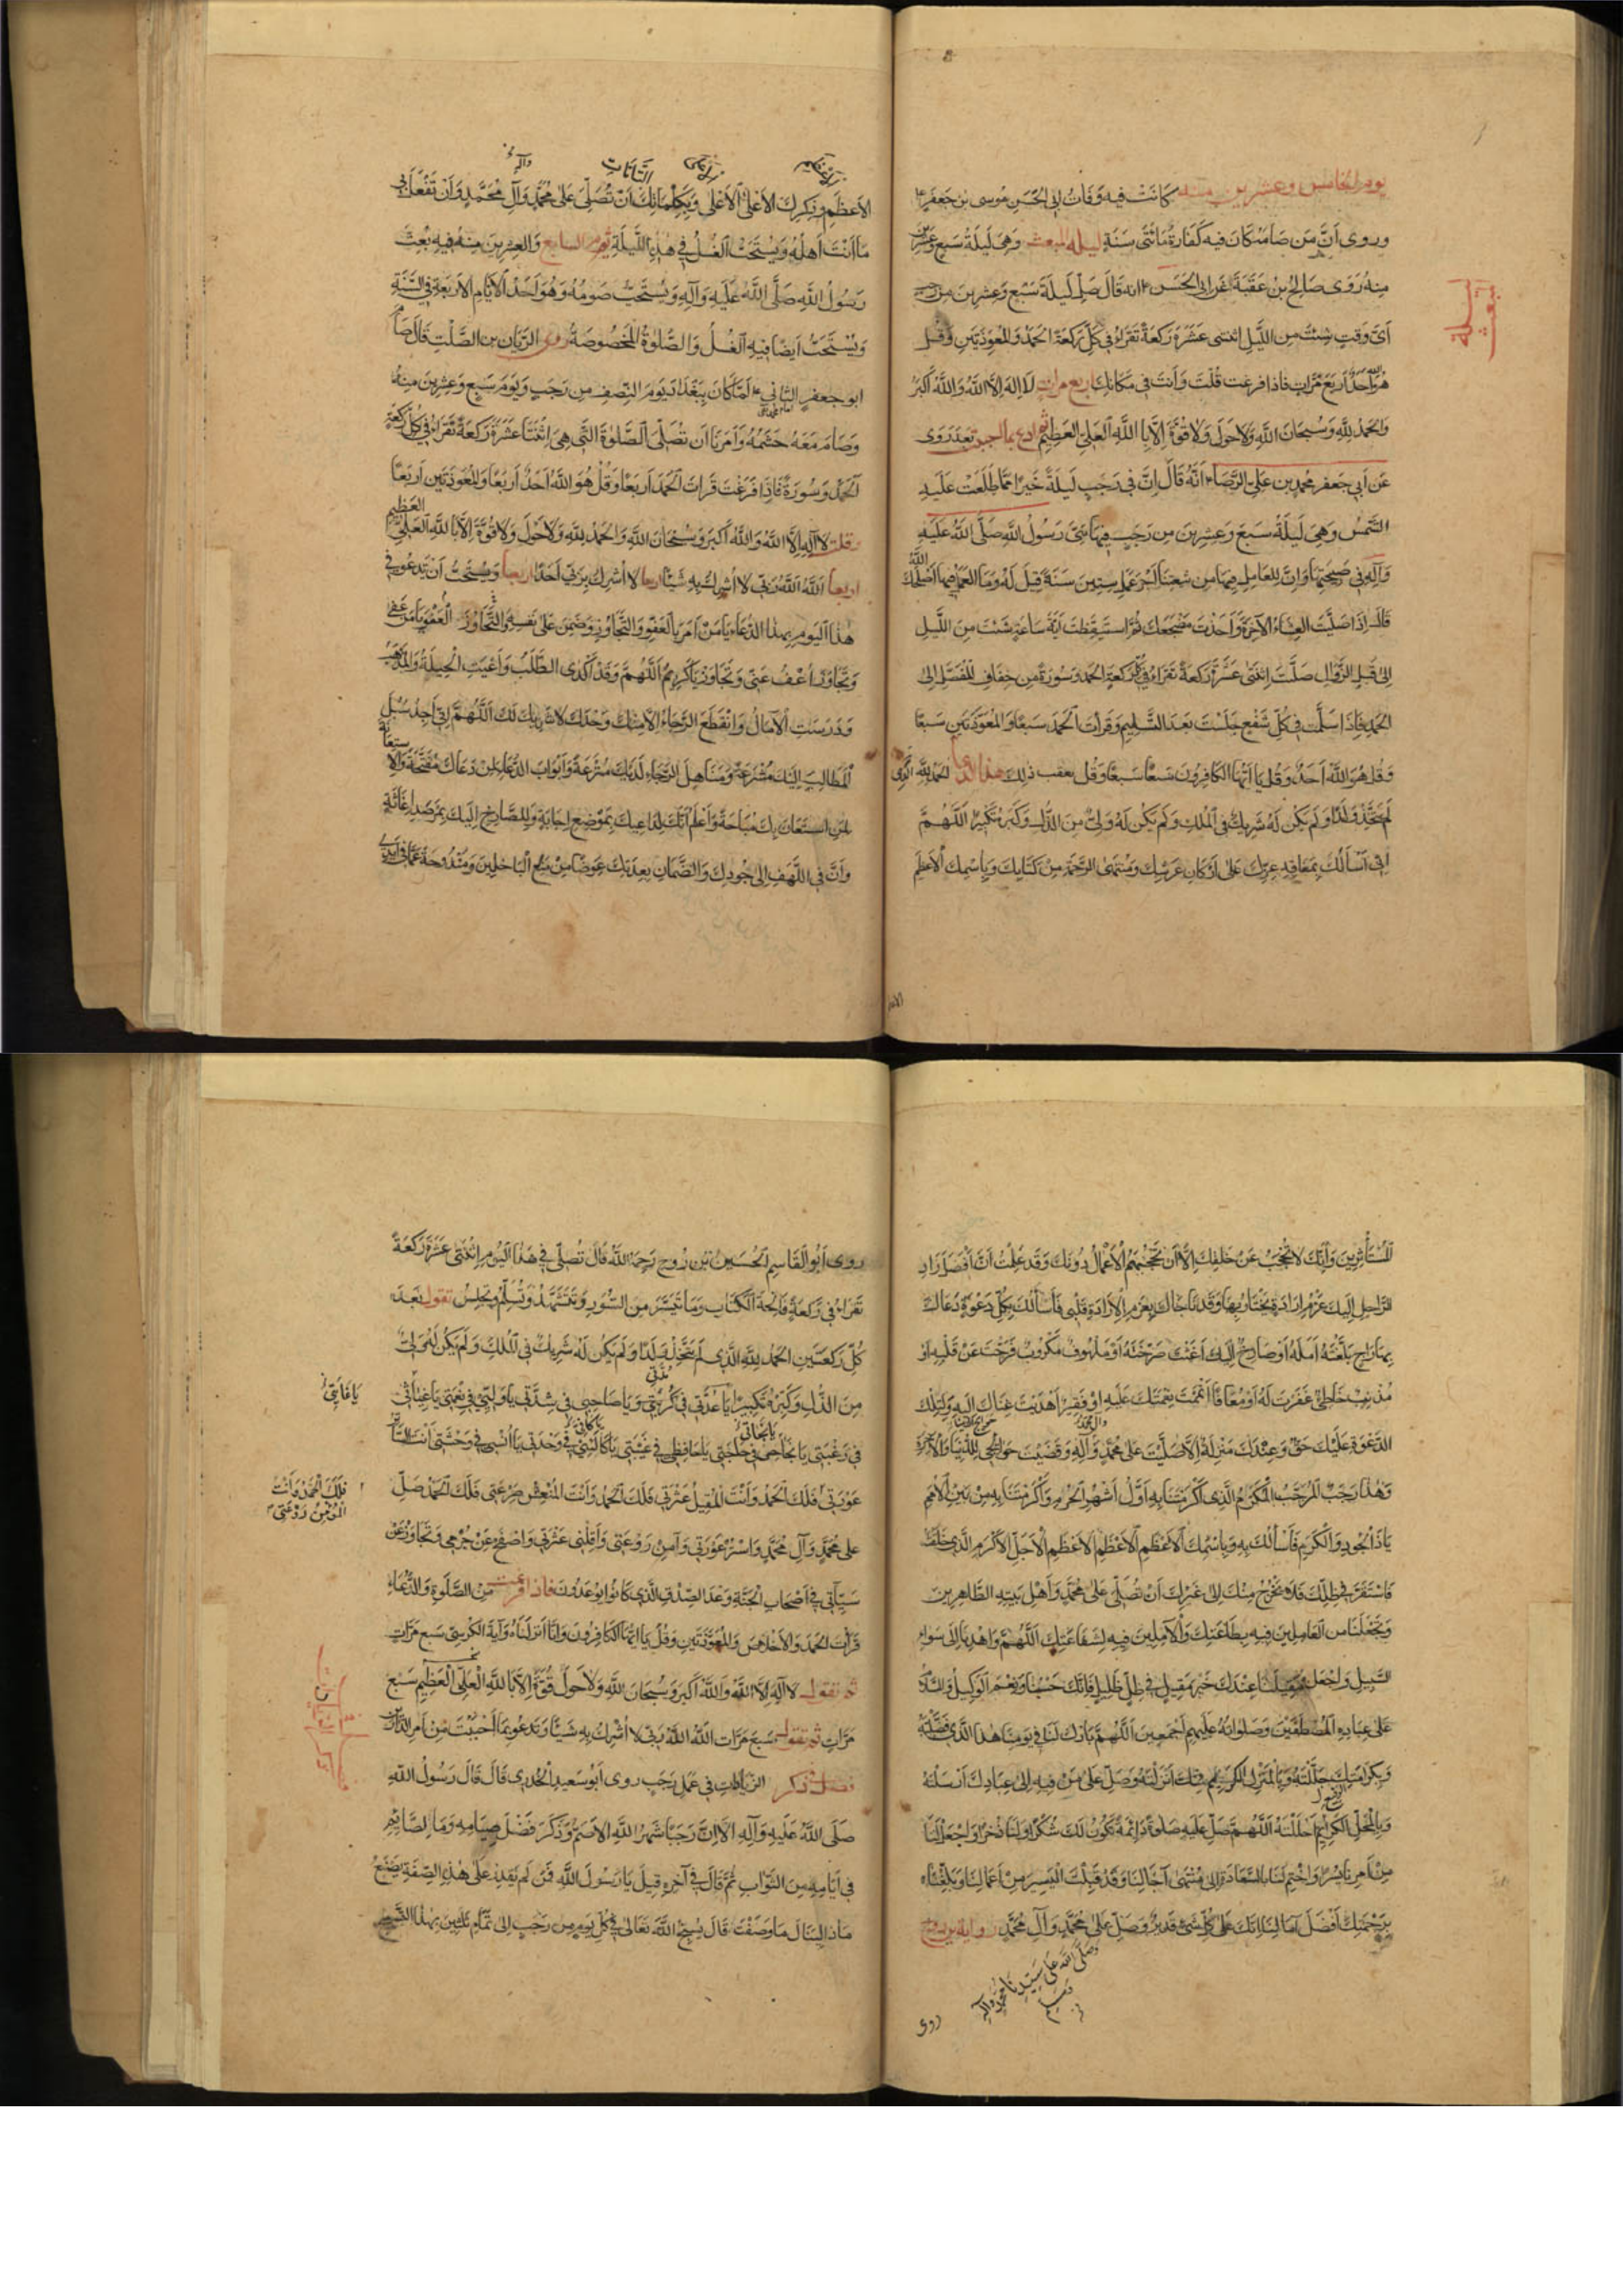 يوم الخامس وعشرين منه كانت فيه وفاة ابي الحسن موسى بن جعفر ع
وروى أنّ من صامه كان فيه كفارة مائتى سنة ليلة المبعث وهى ليلة سبع وعشرين
منه روى صالح بن عقبة عن ابى الحسن ع انه قال صلّ ليلة سبع وعشرين من رجب
اىّ وقت شئت من الليل اثنتى عشرة ركعة تقرأ فى كلّ ركعة الحمد والمعوّذتين وقل
هو الله احد اربع مرّات فاذا فرغت قلت وأنت فى مكانك اربع مرات لا اله الا الله والله أكبر
والحمد لله وسبحان الله ولا حول ولا قوّة إلّا بالله العلى العظيم ثم ادع بما احببت بعد روى
عن أبي جعفر محمد بن على الرّضا ع أنّه قال إنّ فى رجب ليلة خير ممّا طلعت عليه
الشّمس وهى ليلة سبع وعشرين من رجب فيها نبّئ رسول الله صلّى الله عليه
وآله فى صبيحتها وانّ للعامل فيها من شيعتنا أجر عمل ستين سنة قيل له وما العمل فيها اصلحك الله
قال إذا صليت العشاء الآخرة وأخذت مضجعك ثمّ استيقظت أيّة ساعة شئت من اللّيل
إلى قبل الزّوال صلّيت اثنتى عشرة ركعة تقرأ فى كلّ ركعة الحمد وسورة من خفاف المفصّل إلى
الحمد فإذا سلّمت فى كلّ شفع جلست بعد التسليم وقرأت الحمد سبعا والمعوّذتين سبعا
وقل هو الله أحد وقل يا أيها الكافرون سبعًا سبعًا وقل بعقب ذلك هذا الدعا الحمد لله الذى
لم يتّخذ ولدًا ولم يكن له شريك فى الملك ولم يكن له ولىّ من الذّل وكبّره تكبيرًا اللّهمّ
إنى أسألك بمعاقد عزّك على اركان عرشك ومنتهى الرّحمة من كتابك وباسمك الأعظم
ليلة المبعث
الأعظم وذكرك الأعلى الأعلى الأعلى وبكلماتك أن تصلّى على محمّد وآل محمّد وأن تفعل بى
التّامّات
وآله
ما أنت أهله ويستحبّ الغسل فى هذه اللّيلة يوم السابع والعشرين منه فيه بعث
رسول الله صلّى الله عليه وآله ويستحبّ صومه وهو أحد الأيّام الأربعة فى السّنة
ويستحبّ أيضا فيه الغسل والصّلوة المخصوصة روى الرّيان بن الصّلت قال صام
ابو جعفر الثّانى ع لمّا كان ببغداد يوم النّصف من رجب ويوم سبع وعشرين منه
وصام معه حشمه وأمرنا أن نصلّى الصّلوة التّى هى اثنتا عشرة ركعة تقرأ فى كلّ ركعة
الحمد وسورة فاذا فرغت قرأت الحمد أربعًا وقل هو الله أحد أربعًا والمعوّذتين أربعًا
وقلت لا إله إلّا الله والله أكبر وسبحان الله والحمد لله ولا حول ولا قوّة إلّا بالله العلىّ العظيم
اربعا الله الله ربّى لا أشرك به شيئًا اربعا لا أشرك بربّى أحدًا اربعا ويستحبّ أن تدعو فى
هذا اليوم بهذا الدّعاء يا من أمر بالعفو والتّجاوز وضمن على نفسه العفو والتّجاوز يا من عفى
وتجاوز اعف عنّى وتجاوز يا كريم اللّهمّ وقد أكدى الطّلب وأعيت الحيلة والمذهب
ودرست الآمال وانقطع الرّجاء إلّا منك وحدك لا شريك لك اللّهمّ إنّى أجد سبل
المطالب إليك مشرعة ومناهل الرّجاء لديك مترعة وأبواب الدّعاء لمن دعاك مفتّحة والاستعانة
لمن استعان بك مباحة وأعلم أنّك لداعيك بموضع إجابة وللصّارخ إليك بمرصد إغاثة
وأنّ فى اللّهف إلى جودك والضّمان بعدتك عوضًا من منع الباخلين ومندوحة عمّا فى أيدى
المستأثرين وأنّك لا تحجب عن خلقك إلّا أن تحجبهم الأعمال دونك وقد علمت أنّ أفضل زاد
الرّاحل إليك عزم إرادة يختارك بها وقد ناجاك بعزم الإرادة قلبى فأسألك بكلّ دعوة دعاك
بها راج بلّغته أمله أو صارخ إليك أغثت صرخته أو ملهوف مكروب فرّجت عن قلبه أو
مذنب خاطئ غفرت له أو معافًا أتممت نعمتك عليه أو فقير أهديت غناك إليه ولتلك
الدّعوة عليك حقّ وعندك منزلة إلّا صلّيت على محمّد وآله وقضيت حوائجى للدّنيا والآخرة
وهذا رجب المرجّب المكرّم الذى أكرمتنا به أوّل أشهر الحرم وأكرمتنا به من بين الأمم
يا ذا الجود والكرم فأسألك به وباسمك الأعظم الأعظم الأعظم الأجلّ الأكرم الذى خلقته
فاستقرّ فى ظلّك فلا يخرج منك إلى غيرك أن تصلّى على محمّد وأهل بيته الطّاهرين
وتجعلنا من العاملين فيه بطاعتك والآملين فيه لشفاعتك اللّهمّ واهدنا إلى سواء
السّبيل واجعل مقيلنا عندك خير مقيل فى ظلّ ظليل فإنّك حسبنا ونعم الوكيل والسّلام
على عباده المصطفين وصلواته عليهم أجمعين اللّهمّ بارك لنا فى يومنا هذا الذى فضّلته
وبكرامتك جلّلته وبالمنزل الكريم منك أنزلته وصلّ على من فيه إلى عبادك أرسلته
وبالمحلّ الكريم أحللته اللّهمّ صلّ عليه صلوة دائمة تكون لك شكرًا ولنا ذخرًا واجعل لنا
من أمرنا يسرًا واختم لنا بالسّعادة إلى منتهى آجالنا وقد قبلت اليسير من أعمالنا وبلّغتنا
برحمتك أفضل آمالنا إنّك على كلّ شىء قدير وصلّ على محمّد وآل محمّد رواية بن روح
وصلّى الله على سيّدنا محمّد وآله
روى
روى أبو القاسم الحسين بن روح رحمه الله قال تصلّى فى هذا اليوم اثنتى عشرة ركعة
تقرأ فى ركعة فاتحة الكتاب وما تيسّر من السّور وتتشهّد وتسلّم وتجلس تقول بعد
كلّ ركعتين الحمد لله الذى لم يتّخذ ولدًا ولم يكن له شريك فى الملك ولم يكن له ولىّ
من الذّل وكبّره تكبيرًا يا عدّتى فى كربتى ويا صاحبى فى شدّتى يا وليّى فى نعمتى يا غياثى
يا غايتى
فى رغبتى يا نجاحى فى حاجتى يا حافظى فى غيبتى يا كالئى فى وحدتى يا أنسى فى وحشتى أنت السّاتر
عورتى فلك الحمد وأنت المقيل عثرتى فلك الحمد وأنت المنعش صرعتى فلك الحمد صلّ
فلك الحمد وأنت
المؤمن روعتى
على محمّد وآل محمّد واستر عورتى وآمن روعتى وأقلنى عثرتى واصفح عن جرمى وتجاوز عن
سيّآتى فى أصحاب الجنّة وعد الصّدق الذى كانوا يوعدون فاذا فرغت من الصّلوة والدّعاء
قرأت الحمد والاخلاص والمعوّذتين وقل يا ايّها الكافرون وإنّا أنزلناه وآية الكرسى سبع مرّات
ثم تقول لا اله الا الله والله أكبر وسبحان الله ولا حول ولا قوّة إلّا بالله العلىّ العظيم سبع
مرّات ثم تقول سبع مرّات الله الله ربّى لا أشرك به شيئًا وتدعو بما أحببت من أمر الدّارين
فصل فى ذكر الزّيادات فى عمل رجب روى أبو سعيد الخدرى قال قال رسول الله
صلّى الله عليه وآله ألا إنّ رجبًا شهر الله الأصمّ وذكر فضل صيامه وما لصائم
فى أيّامه من الثّواب ثمّ قال فى آخره قيل يا رسول الله فمن لم يقدر على هذه الصّفة يصنع
ماذا لينال ما وصفت قال يسبّح الله تعالى فى كلّ يوم من رجب إلى تمام ثلثين بهذا التّسبيح